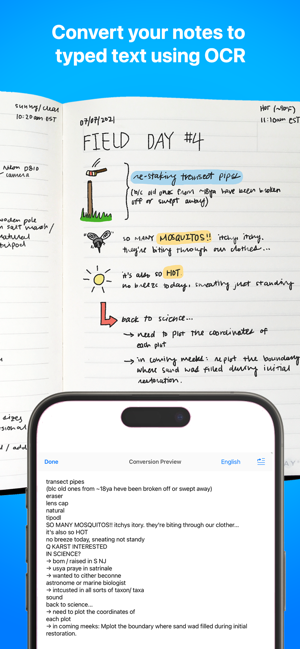 Convert your notes to
typed text using OCR
sunny/clear
10:20am EST
neon D810
camera
wooden pole
in salt marsh/
natural
tripod
sizes
/ add
07/07/2021
HOT (~90F)
11:10am EST
FIELD DAY #4
re-staking transect pipes
(b/c old ones from ~18ya have been broken
off or swept away)
SO MANY MOSQUITOS!! itchy itchy.
they're biting through our clothes...
it's also so HOT
no breeze today, sweating just standing
back to science...
→ need to plot the coordinates of
each plot
→ in coming weeks: replot the boundary
where sand was filled during initial
restoration.
Done
Conversion Preview
English
transect pipes
(blc old ones from ~18ya heve been broken off or swept away)
eraser
lens cap
natural
tipodl
SO MANY MOSQUITOS!! itchys itory. they're biting through our clother...
it's also so HOT
no breeze today, sneating not standy
Q KARST INTERESTED
IN SCIENCE?
→ bom / raised in S NJ
→ usya praye in satrinale
→ wanted to cither beconne
astronome or marine biologist
→ intcusted in all sorts of taxon/ taxa
sound
back to science...
→ need to plot the coordinates of
each plot
→ in coming meeks: Mplot the boundary where sand wad filled during initial
restoration.